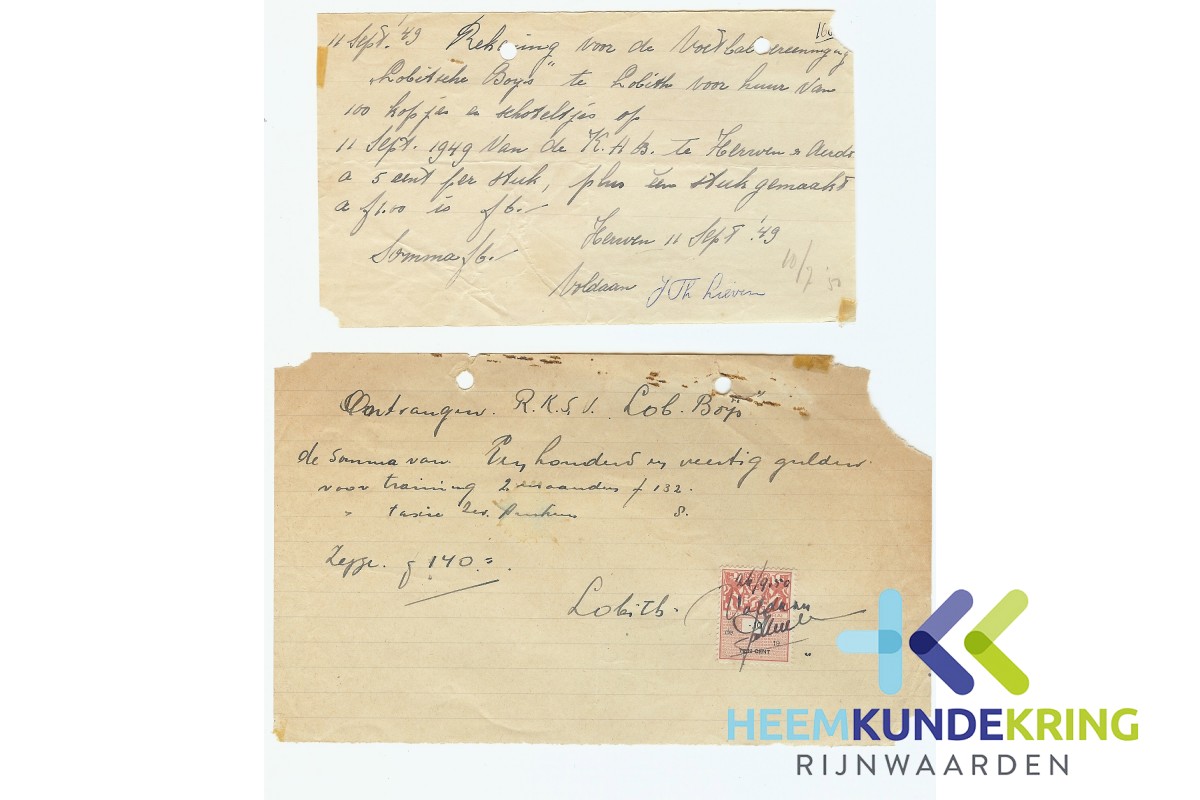 100
11 Sept. '49 Rekening voor de Voetbalvereeniging
„Lobitsche Boys" te Lobith voor huur van
100 kopjes en schoteltjes op
11 Sept. 1949 Van de K.A.B. te Herwen & Aerdt
a 5 cent per stuk, plus één stuk gemaakt
a ƒ1.00 is ƒ6.-
Herwen 11 Sept '.49
Somma ƒ6.-
10/7 '50
Voldaan J Th Lieven
Ontvangen. R.K.S.V. Lob. Boys"
de somma van. honderd en veertig gulden.
voor training 2 maanden ƒ 132.
" taxie 8.
Zegge. ƒ 140.=.
Lobith.
Voldaan
TIEN CENT
HEEMKUNDEKRING
RIJNWAARDEN